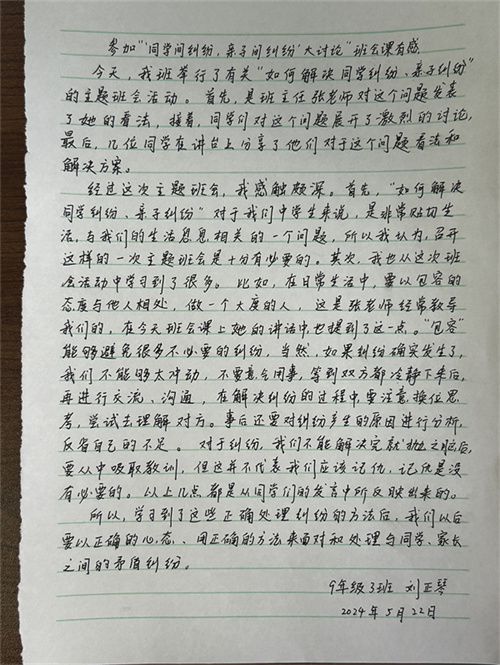 参加"'同学间纠纷,亲子间纠纷'大讨论"班会课有感
今天,我班举行了有关"如何解决同学纠纷、亲子纠纷"
的主题班会活动。首先,是班主任张老师对这个问题发表
了她的看法,接着,同学们对这个问题展开了激烈的讨论,
最后,几位同学在讲台上分享了他们对于这个问题看法和
解决方案。
经过这次主题班会,我感触颇深。首先,"如何解决
同学纠纷、亲子纠纷"对于我们中学生来说,是非常贴切生
活,与我们的生活息息相关的一个问题,所以我认为,召开
这样的一次主题班会是十分有必要的。其次,我也从这次班
会活动中学习到了很多。比如,在日常生活中,要以包容的
态度与他人相处,做一个大度的人,这是张老师经常教导
我们的,在今天班会课上她的讲话中也提到了这一点。"包容"
能够避免很多不必要的纠纷,当然,如果纠纷确实发生了,
我们不能够太冲动,不要意气用事,等到双方都冷静下来后,
再进行交流、沟通,在解决纠纷的过程中要注意换位思
考,尝试去理解对方。事后还要对纠纷产生的原因进行分析,
反省自己的不足。对于纠纷,我们不能解决完就抛之脑后,
要从中吸取教训,但这并不代表我们应该记仇,记仇是没
有必要的。以上几点都是从同学们的发言中所反映出来的。
所以,学习到了这些正确处理纠纷的方法后,我们以后
要以正确的心态、用正确的方法来面对和处理与同学、家长
之间的矛盾纠纷。
9年级3班 刘正琴
2024年5月22日